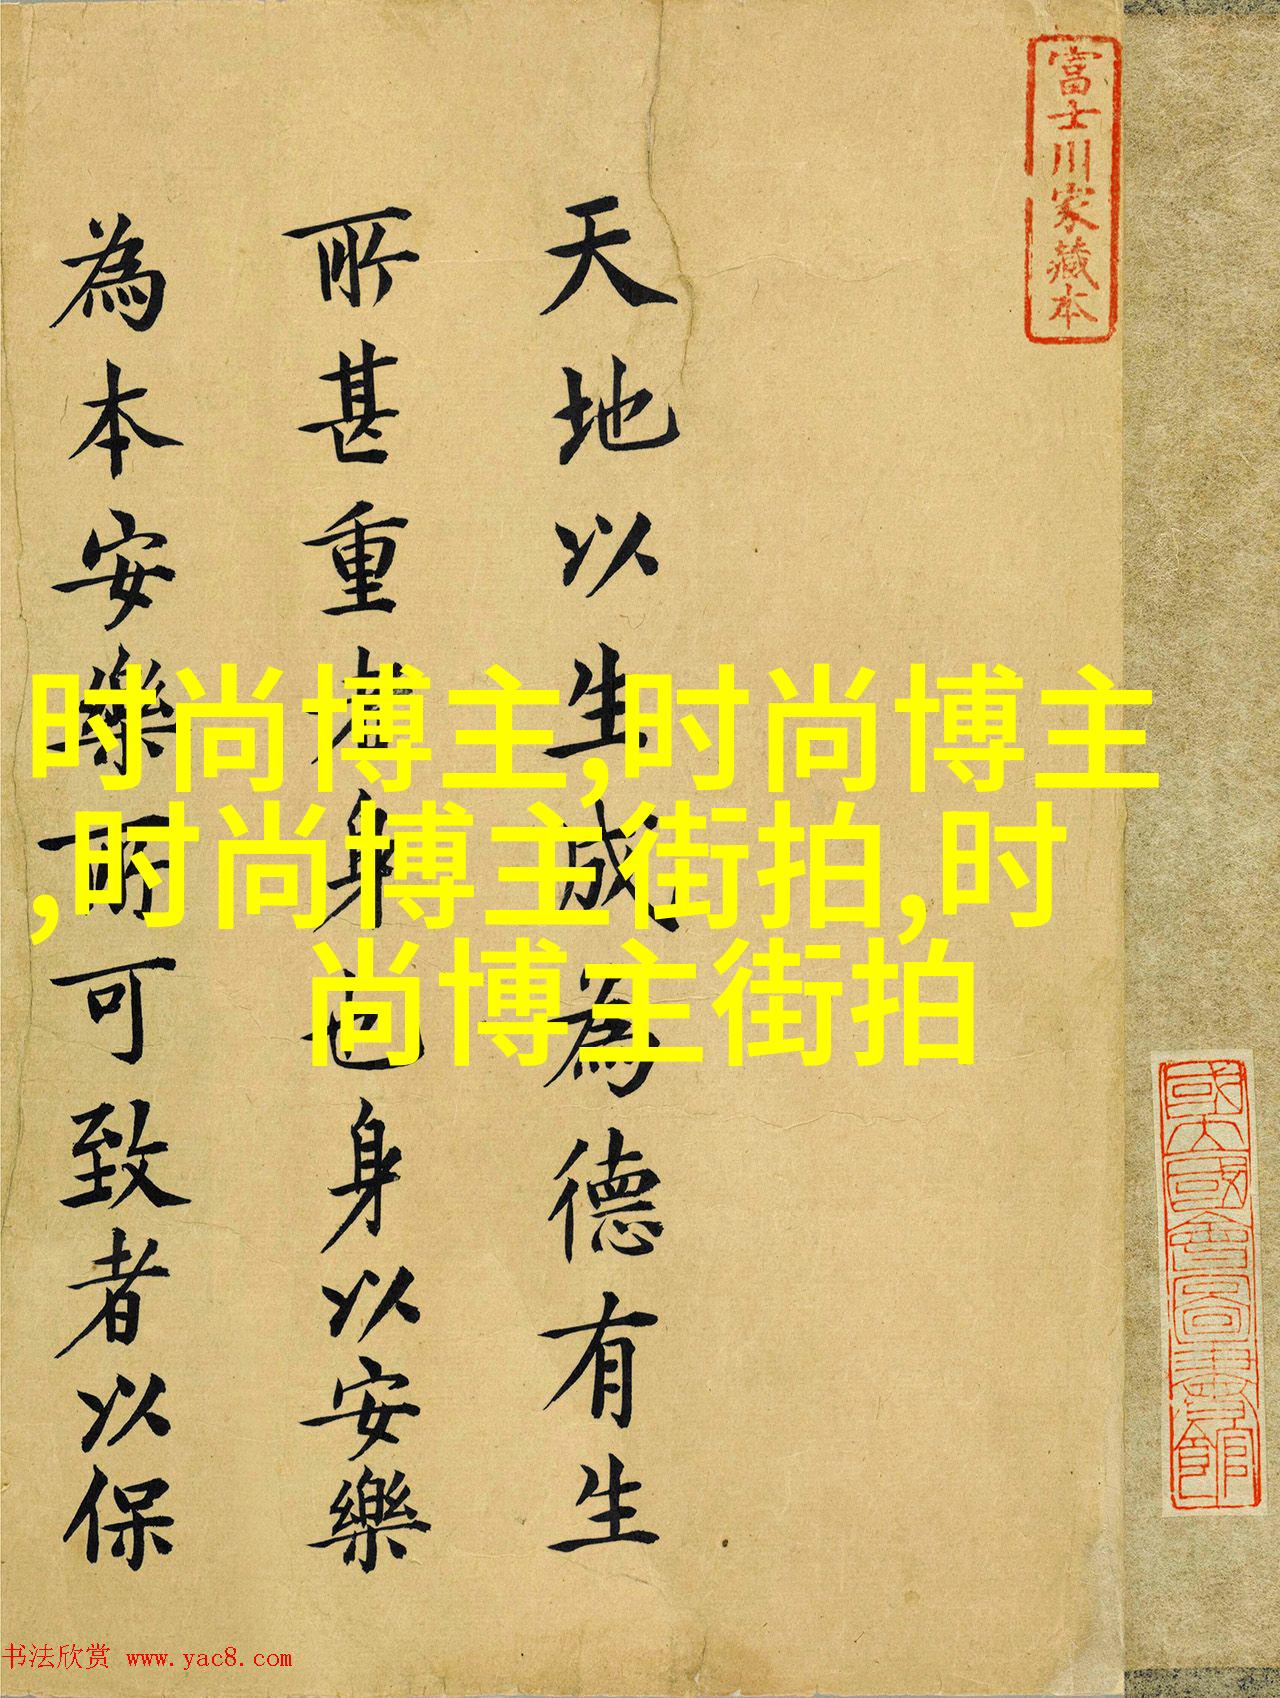 富士川家藏本
天地以生成為德有生
所甚重者身也身以安樂
為本安樂所可致者以保
时尚博主,时尚博主
,时尚博主街拍,时
尚博主街拍
书法欣赏 www.yac8.com